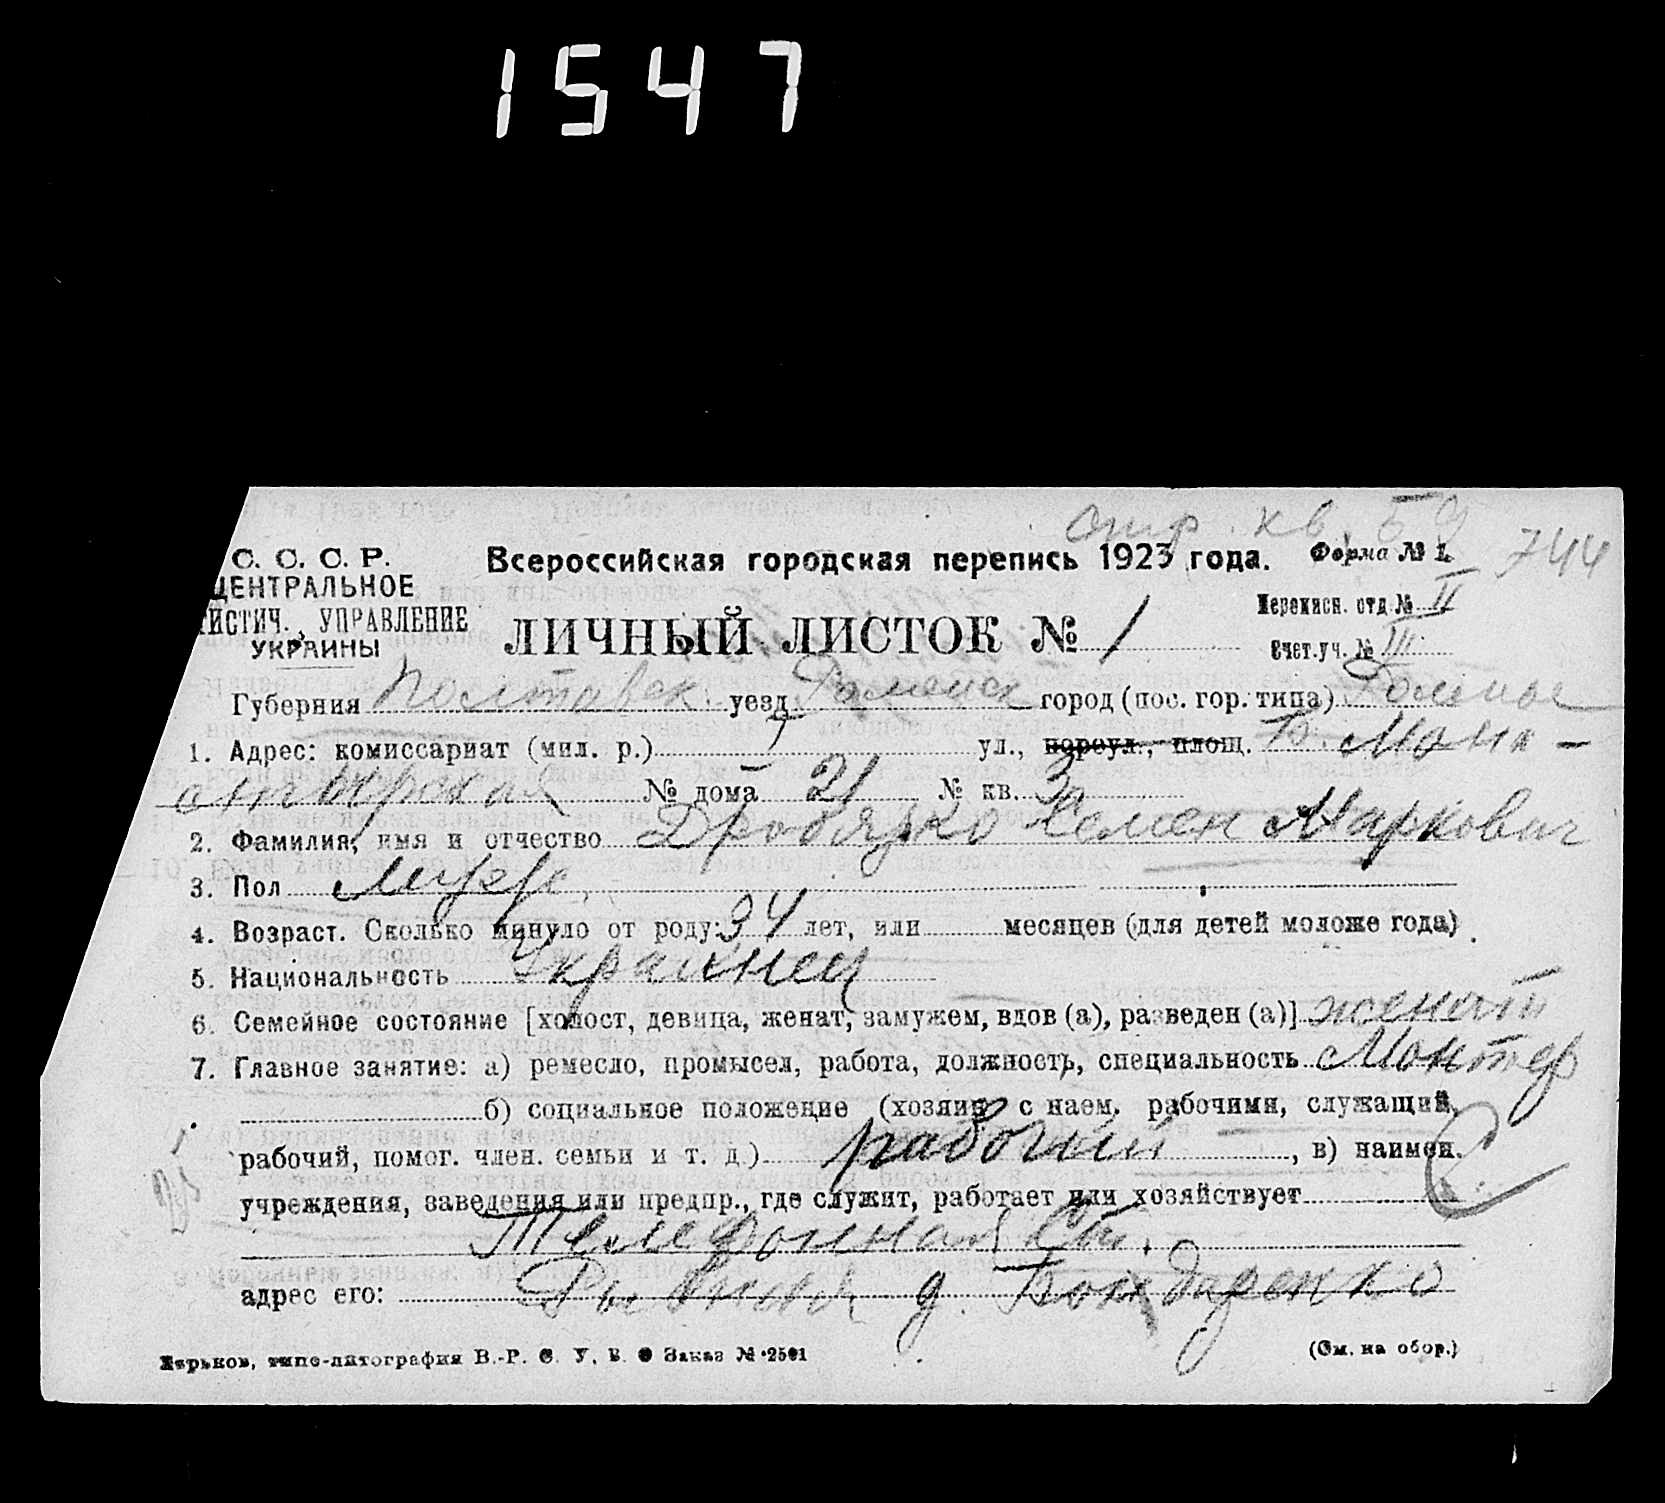 1547
стр. кв. 59
С. С. С. Р. Всероссийская городская перепись 1923 года. Форма № 1. 744
ЦЕНТРАЛЬНОЕ
ТИСТИЧ. УПРАВЛЕНИЕ ЛИЧНЫЙ ЛИСТОК № 1 Переписн. отд № II
УКРАИНЫ Счет. уч. № III
Губерния Полтавск. уезд Роменск город (пос. гор. типа) Ромны
1. Адрес: комиссариат (мил. р.) ул., переул., площ. Б. Мона-
стырская № дома 21 № кв. 3
2. Фамилия, имя и отчество Дробязко Семен Маркович
3. Пол
4. Возраст. Сколько минуло от роду: 34 лет, или месяцев (для детей моложе года)
5. Национальность Украинец
6. Семейное состояние [холост, девица, женат, замужем, вдов (а), разведен (а)] женатый
7. Главное занятие: а) ремесло, промысел, работа, должность, специальность Монтер
б) социальное положение (хозяин с наем. рабочими, служащий,
рабочий, помог. член. семьи и т. д.) рабочий, в) наимен.
учреждения, заведения или предпр., где служит, работает или хозяйствует
Телефонная Ст.
адрес его: д. Бондаренко
Харьков, типо-литография В.-Р. С. У. В. Заказ № 2501 (См. на обор.)